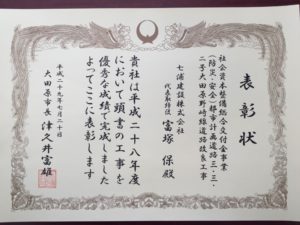 表彰状
社会資本整備総合交付金事業
（防災・安全）都市計画道路三・三・
二号大田原野崎線道路改良工事
七浦建設株式会社
代表取締役 富塚 保殿
貴社は平成二十八年度
において頭書の工事を
優秀な成績で完成しました
よってここに表彰します
平成二十九年七月二十日
大田原市長 津久井富雄